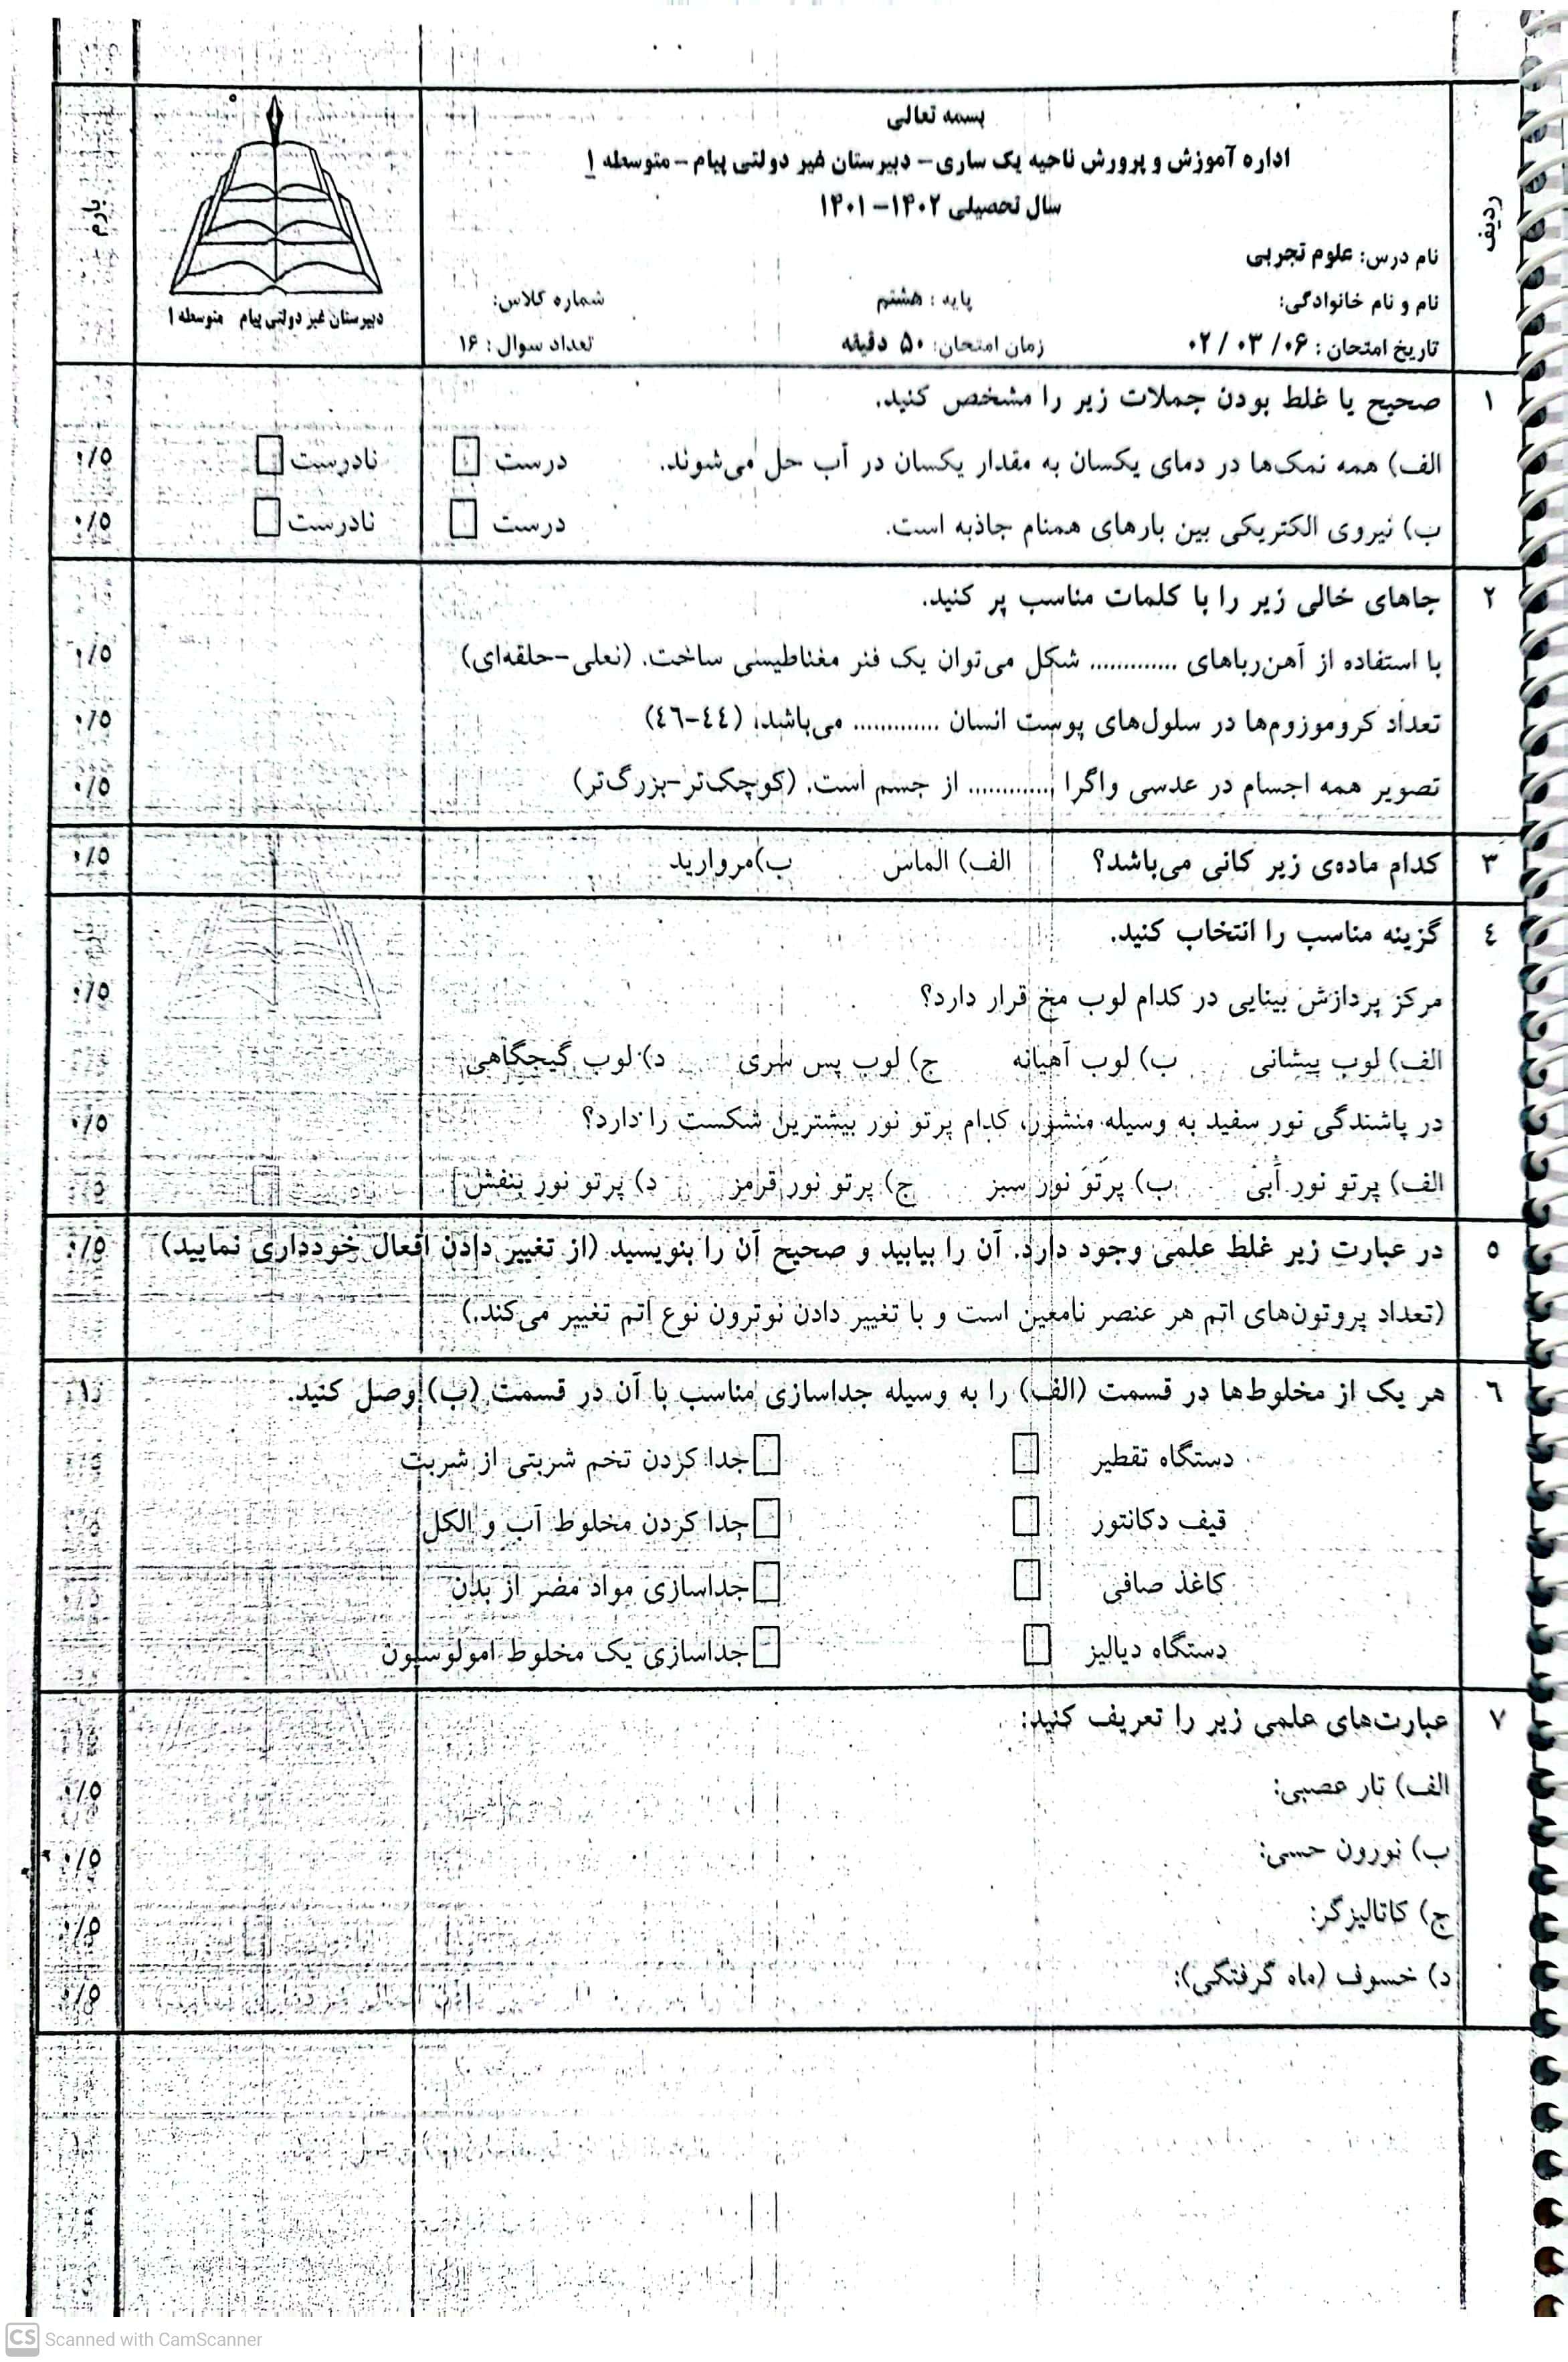 بسمه تعالی
اداره آموزش و پرورش ناحیه یک ساری- دبیرستان غیر دولتی پیام - متوسطه ۱
سال تحصیلی ۱۴۰۲-۱۴۰۱
ردیف
بارم
نام درس: علوم تجربی
نام و نام خانوادگی: پایه : هشتم شماره کلاس:
تاریخ امتحان : ۰۲/۰۳/۰۶ زمان امتحان: ۵۰ دقیقه تعداد سوال : ۱۶
دبیرستان غیر دولتی پیام متوسطه ۱
۱ صحیح یا غلط بودن جملات زیر را مشخص کنید.
الف) همه نمک‌ها در دمای یکسان به مقدار یکسان در آب حل می‌شوند. درست نادرست ۰/۵
ب) نیروی الکتریکی بین بارهای همنام جاذبه است. درست نادرست ۰/۵
۲ جاهای خالی زیر را با کلمات مناسب پر کنید.
با استفاده از آهن‌رباهای ............ شکل می‌توان یک فنر مغناطیسی ساخت. (نعلی-حلقه‌ای) ۰/۵
تعداد کروموزوم‌ها در سلول‌های پوست انسان ............ می‌باشد. (٤٤-٤٦) ۰/۵
تصویر همه اجسام در عدسی واگرا ............ از جسم است. (کوچک‌تر-بزرگ‌تر) ۰/۵
۳ کدام ماده‌ی زیر کانی می‌باشد؟ الف) الماس ب)مروارید ۰/۵
٤ گزینه مناسب را انتخاب کنید.
مرکز پردازش بینایی در کدام لوب مخ قرار دارد؟ ۰/۵
الف) لوب پیشانی ب) لوب آهیانه ج) لوب پس سری د) لوب گیجگاهی
در پاشندگی نور سفید به وسیله منشور، کدام پرتو نور بیشترین شکست را دارد؟ ۰/۵
الف) پرتو نور آبی ب) پرتو نور سبز ج) پرتو نور قرمز د) پرتو نور بنفش
۵ در عبارت زیر غلط علمی وجود دارد. آن را بیابید و صحیح آن را بنویسید (از تغییر دادن افعال خودداری نمایید) ۰/۵
(تعداد پروتون‌های اتم هر عنصر نامعین است و با تغییر دادن نوترون نوع اتم تغییر می‌کند.)
٦ هر یک از مخلوط‌ها در قسمت (الف) را به وسیله جداسازی مناسب با آن در قسمت (ب) وصل کنید. ۱
دستگاه تقطیر جدا کردن تخم شربتی از شربت
قیف دکانتور جدا کردن مخلوط آب و الکل
کاغذ صافی جداسازی مواد مضر از بدن
دستگاه دیالیز جداسازی یک مخلوط امولوسیون
۷ عبارت‌های علمی زیر را تعریف کنید:
الف) تار عصبی: ۰/۵
ب) نورون حسی: ۰/۵
ج) کاتالیزگر: ۰/۵
د) خسوف (ماه گرفتگی): ۰/۵
CS Scanned with CamScanner